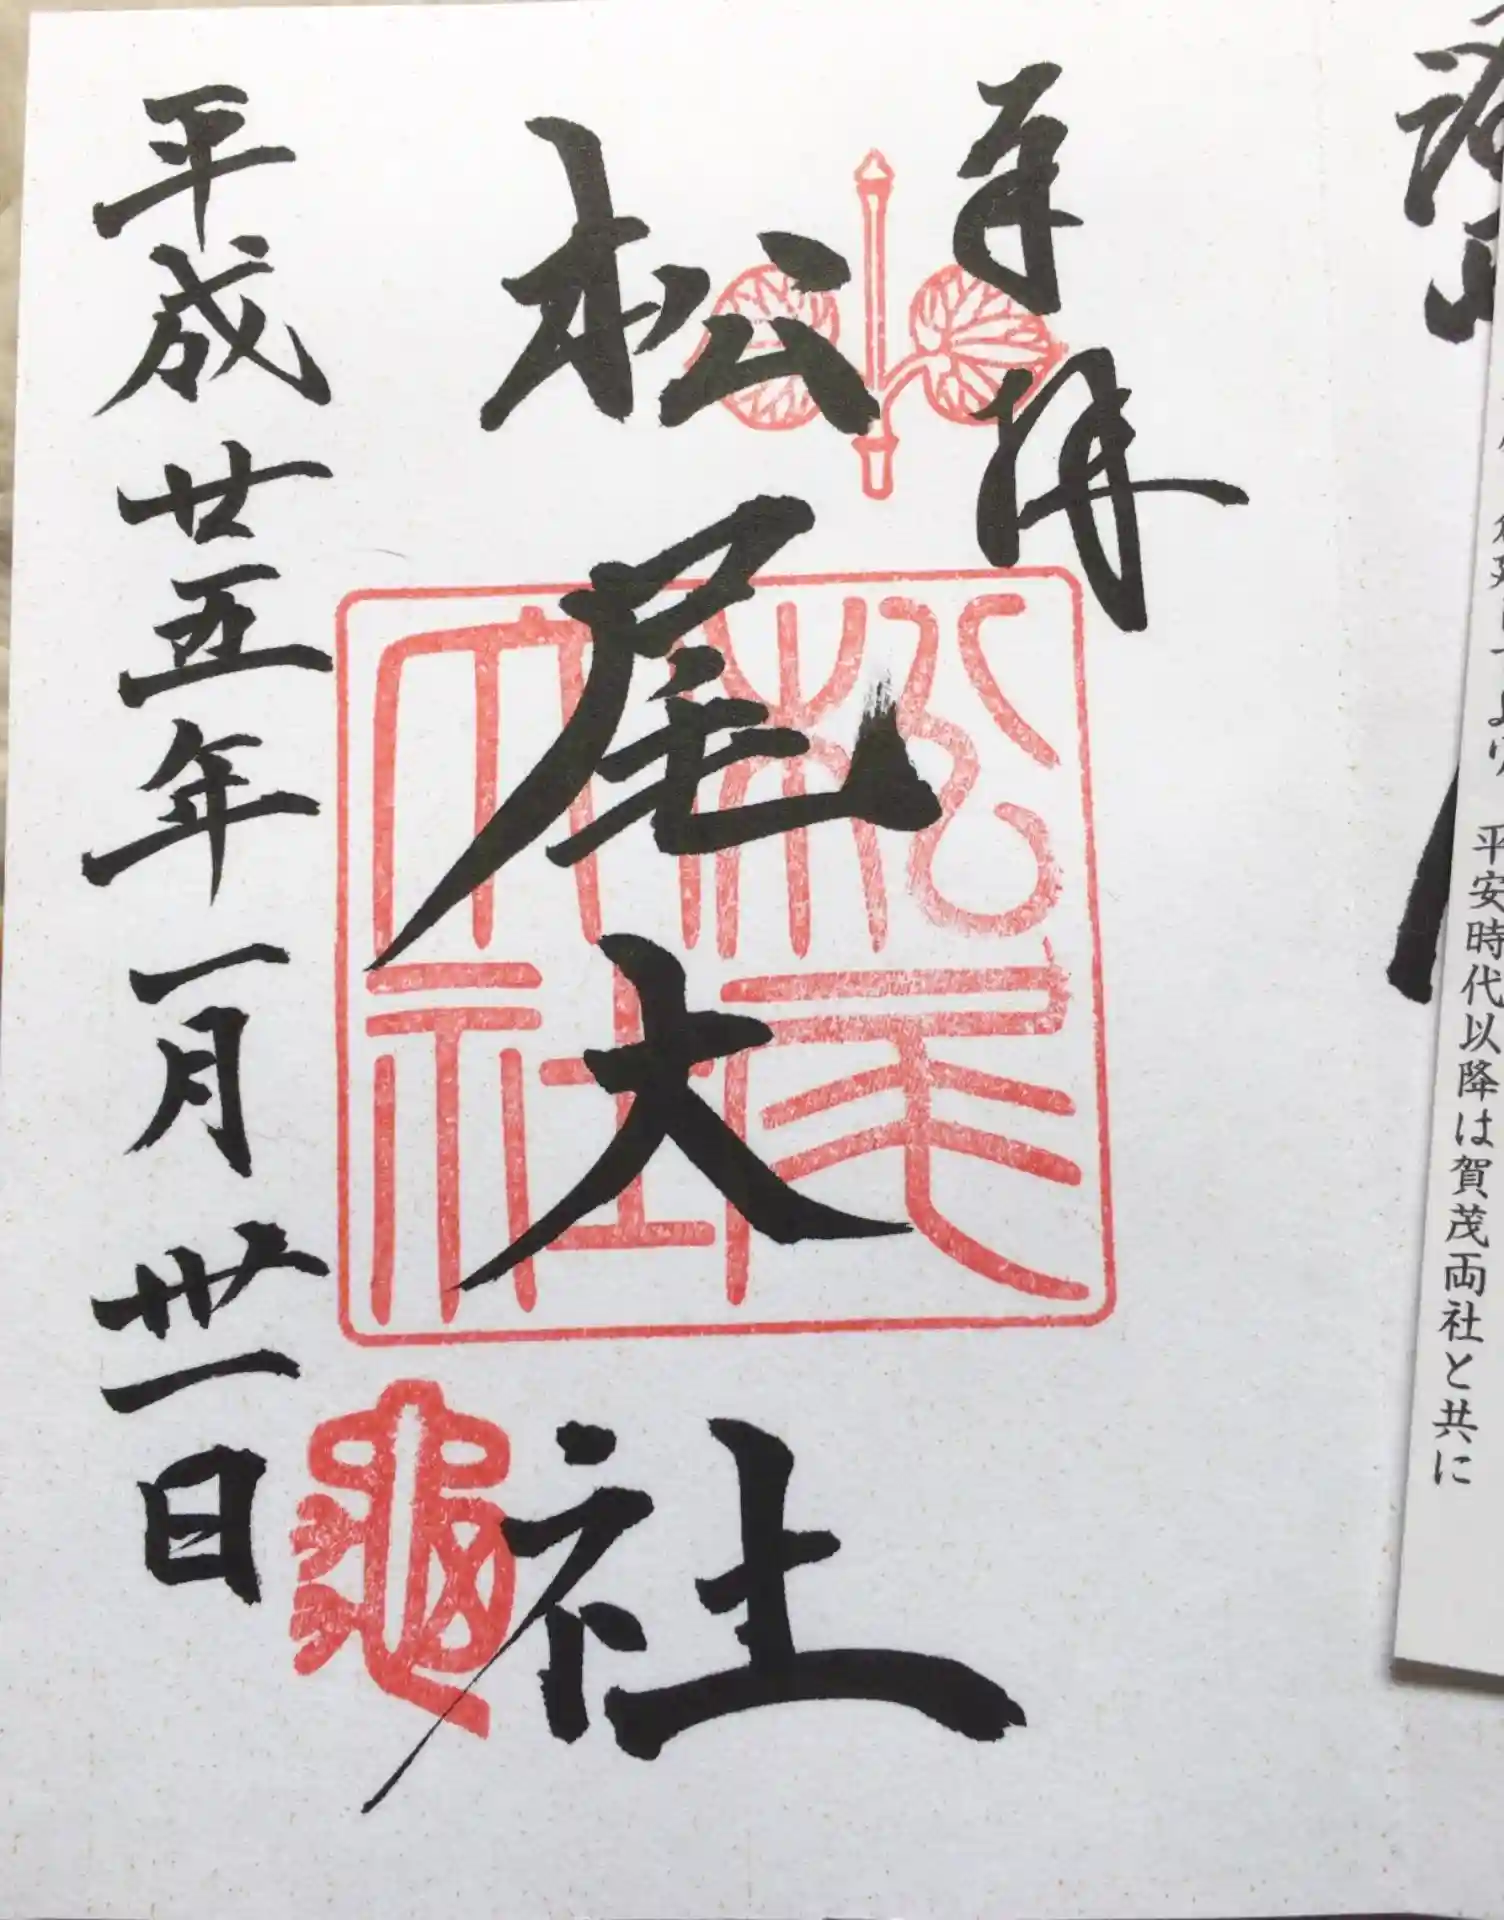 平安時代以降は賀茂両社と共に
奉拝
松尾大社
松尾大社
平成廿五年一月卅一日